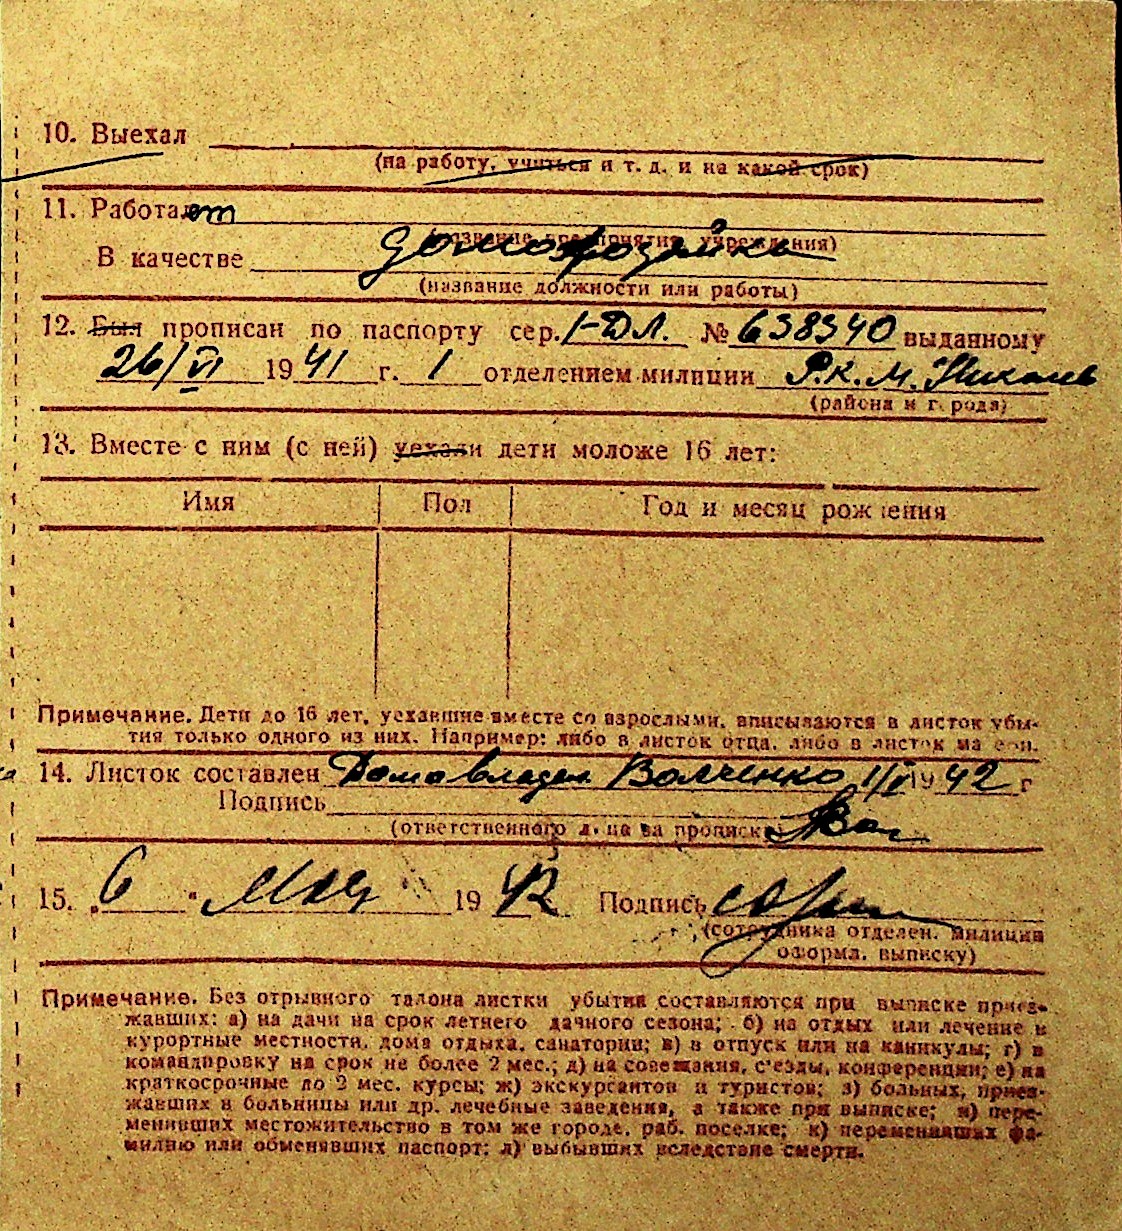 10. Выехал
(на работу, учиться и т. д. и на какой срок)
11. Работает
(название предприятия, учреждения)
В качестве домохозяйки
(название должности или работы)
12. Был прописан по паспорту сер. I-ДЛ. № 638340 выданному
26/VI 1941 г. 1 отделением милиции Р.К.М. Николаев
(района и города)
13. Вместе с ним (с ней) уехали дети моложе 16 лет:
Имя Пол Год и месяц рождения
Примечание. Дети до 16 лет, уехавшие вместе со взрослыми, вписываются в листок убы-
тия только одного из них. Например: либо в листок отца, либо в листок матери.
14. Листок составлен Домовладел Волченко 1/V 1942 г
Подпись
(ответственного лица за прописку)
15. „6" мая 1942 Подпись
(сотрудника отделен. милиции
оформл. выписку)
Примечание. Без отрывного талона листки убытия составляются при выписке приез-
жавших: а) на дачи на срок летнего дачного сезона; б) на отдых или лечение в
курортные местности, дома отдыха, санатории; в) в отпуск или на каникулы; г) в
командировку на срок не более 2 мес.; д) на совещания, с'езды, конференции; е) на
краткосрочные до 2 мес. курсы; ж) экскурсантов и туристов; з) больных, приез-
жавших в больницы или др. лечебные заведения, а также при выписке; и) пере-
менивших местожительство в том же городе, раб. поселке; к) переменивших фа-
милию или обменявших паспорт; л) выбывших вследствие смерти.